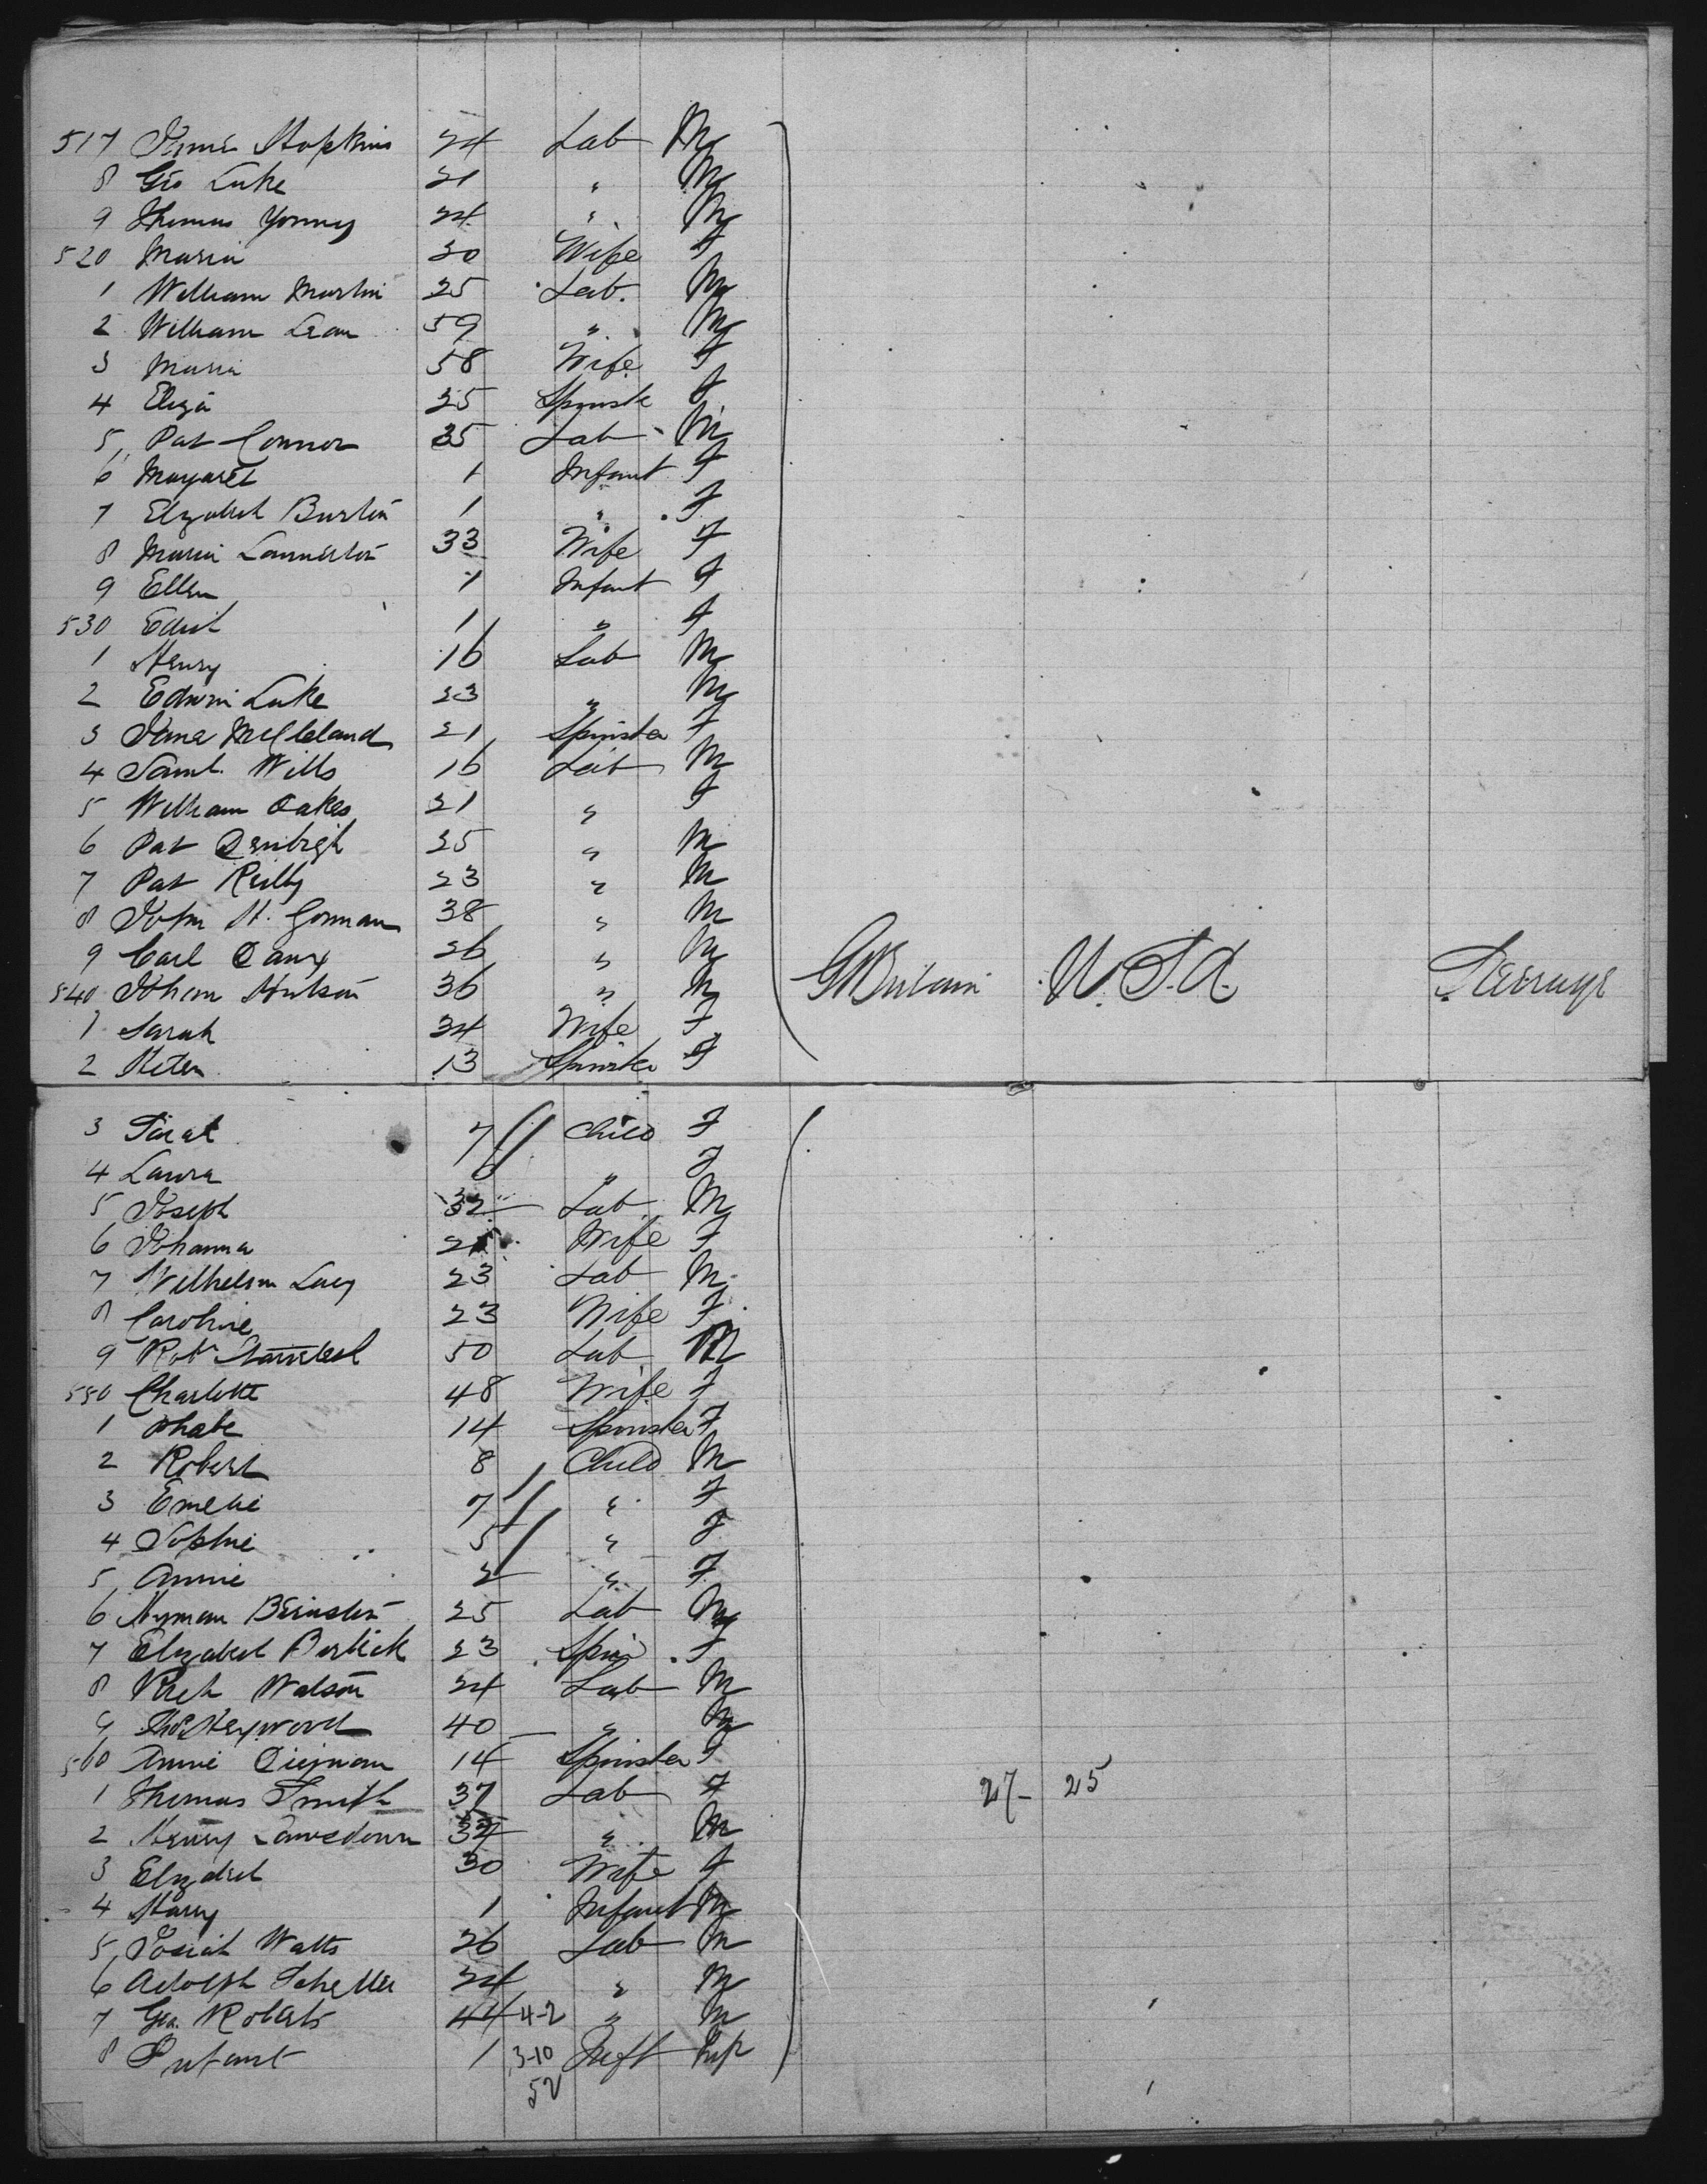 517 James Hopkins 24 Lab M
8 Geo Luke 21 " M
9 Thomas Young 24 " M
520 Maria 30 Wife F
1 William Martin 25 Lab. M
2 William Lean 59 " M
3 Maria 58 Wife F
4 Eliza 25 Spinste F
5 Pat Connor 35 Lab M
6 Margaret 1 Infant F
7 Elizabeth Burton 1 " F
8 Maria 33 Wife F
9 Ellen 1 Infant F
530 Edith 1 " F
1 Henry 16 Lab M
2 Edwin Luke 23 " M
3 Jane McCleland 21 Spinster F
4 Saml. Wills 16 Lab M
5 William Oakes 21 " F
6 Pat 25 " M
7 Pat Reilly 23 " M
8 John H. Gorman 38 " M
9 Carl 26 " M G Britain U.S.A. Steerage
540 36 " M
1 Sarah 34 Wife F
2 13 Spinster F
3 7 Child F
4 Laura " F
5 Joseph 32 Lab M
6 Johanna Wife F
7 Wilhelm 23 Lab M
8 Caroline 23 Wife F
9 Robt 50 Lab M
550 Charlotte 48 Wife F
1 Phabe 14 Spinster F
2 Robert 8 Child M
3 Emelie 7 " F
4 Sophie 5 " F
5 Annie 2 " F
6 Hyman 25 Lab M
7 Elizabeth 23 Spin F
8 Watson 24 Lab M
9 Thos Heywood 40 " M
560 Annie 14 Spinster F
1 Thomas Smith 37 Lab F 27- 25
2 Henry Lansdown 34 " M
3 Elizabeth 30 Wife F
4 Harry 1 Infant M
5 Josiah Watts 26 Lab M
6 Adolph 24 " M
7 Geo. Roberts 44 4-2 " M
8 Infant 1 3-10 Inft
52